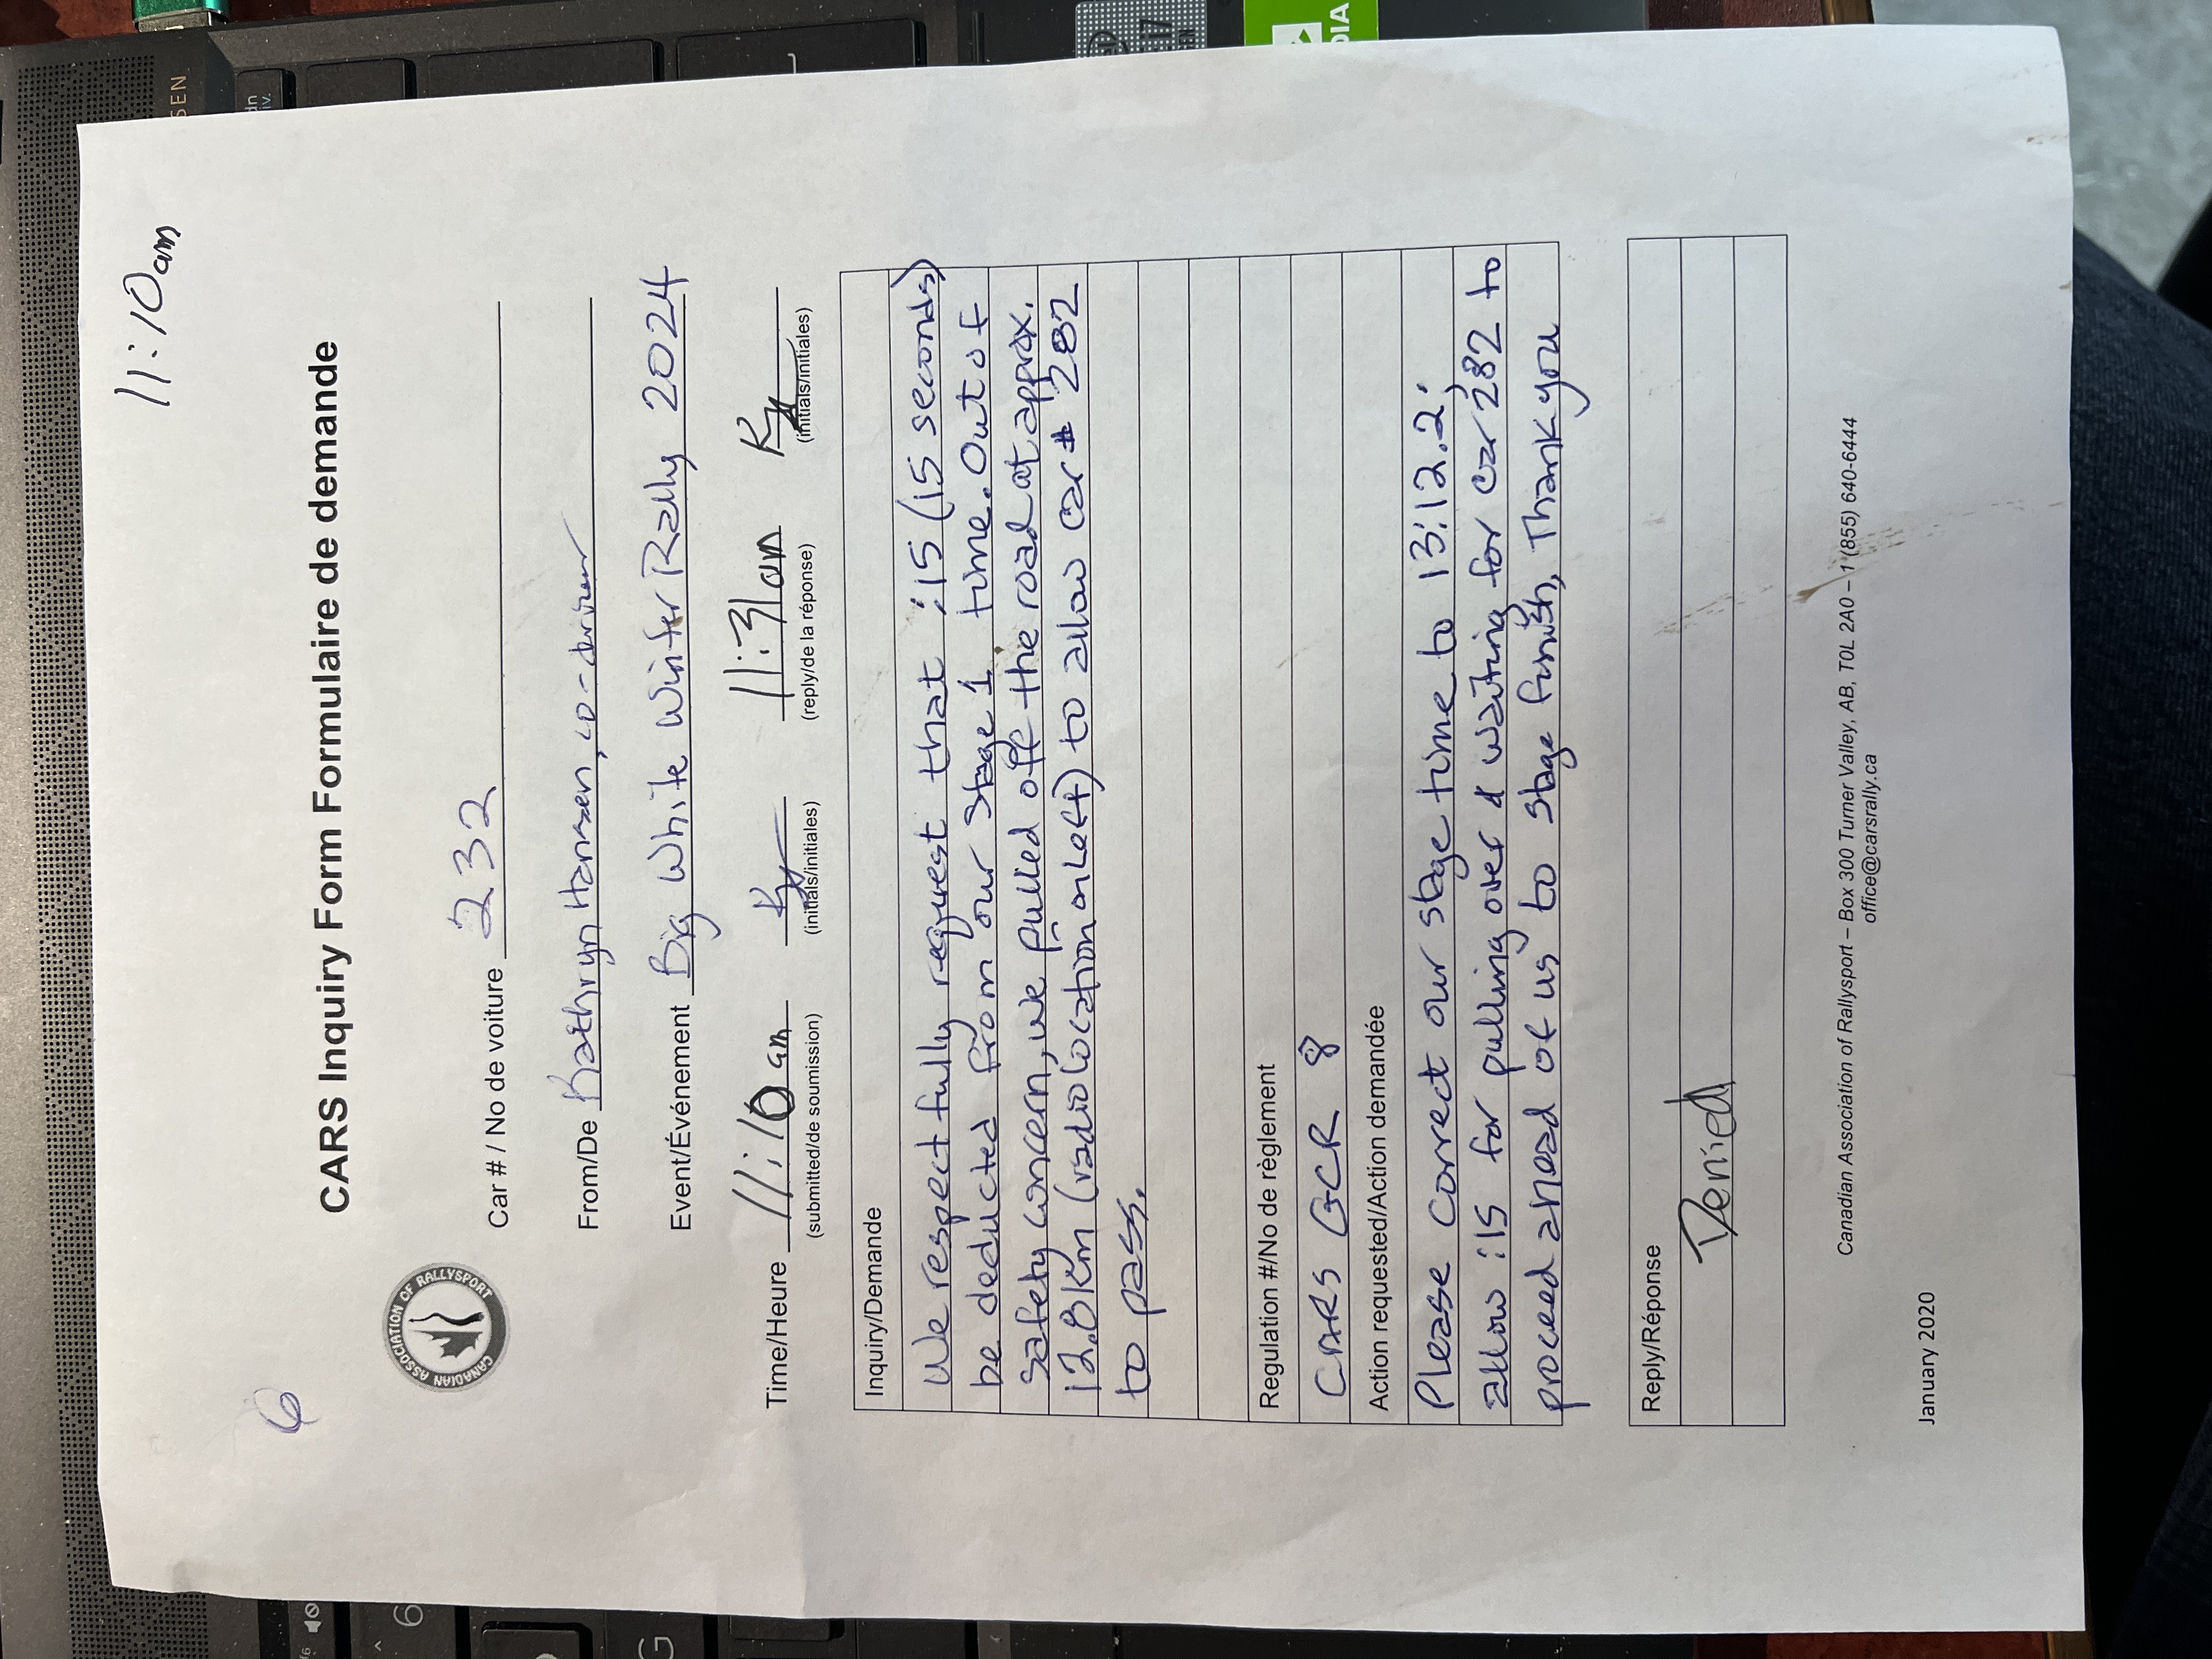 11:10am
6
CARS Inquiry Form Formulaire de demande
CANADIAN ASSOCIATION OF RALLYSPORT
Car # / No de voiture 232
From/De Kathryn Hansen, co-driver
Event/Événement Big White Winter Rally 2024
Time/Heure 11:10 am KH 11:31am KH
(submitted/de soumission) (initials/initiales) (reply/de la réponse) (initials/initiales)
Inquiry/Demande
We respectfully request that :15 (15 seconds)
be deducted from our stage 1 time. Out of
safety concern, we pulled off the road at approx.
12.8Km (radio location on Left) to allow car # 282
to pass.
Regulation #/No de règlement
CARS GCR 8
Action requested/Action demandée
Please correct our stage time to 13:12.2;
allow :15 for pulling over & waiting for car 282 to
proceed ahead of us to stage finish, Thank you
Reply/Réponse
Denied
Canadian Association of Rallysport – Box 300 Turner Valley, AB, T0L 2A0 – 1 (855) 640-6444
office@carsrally.ca
January 2020
SEN
6
G
17